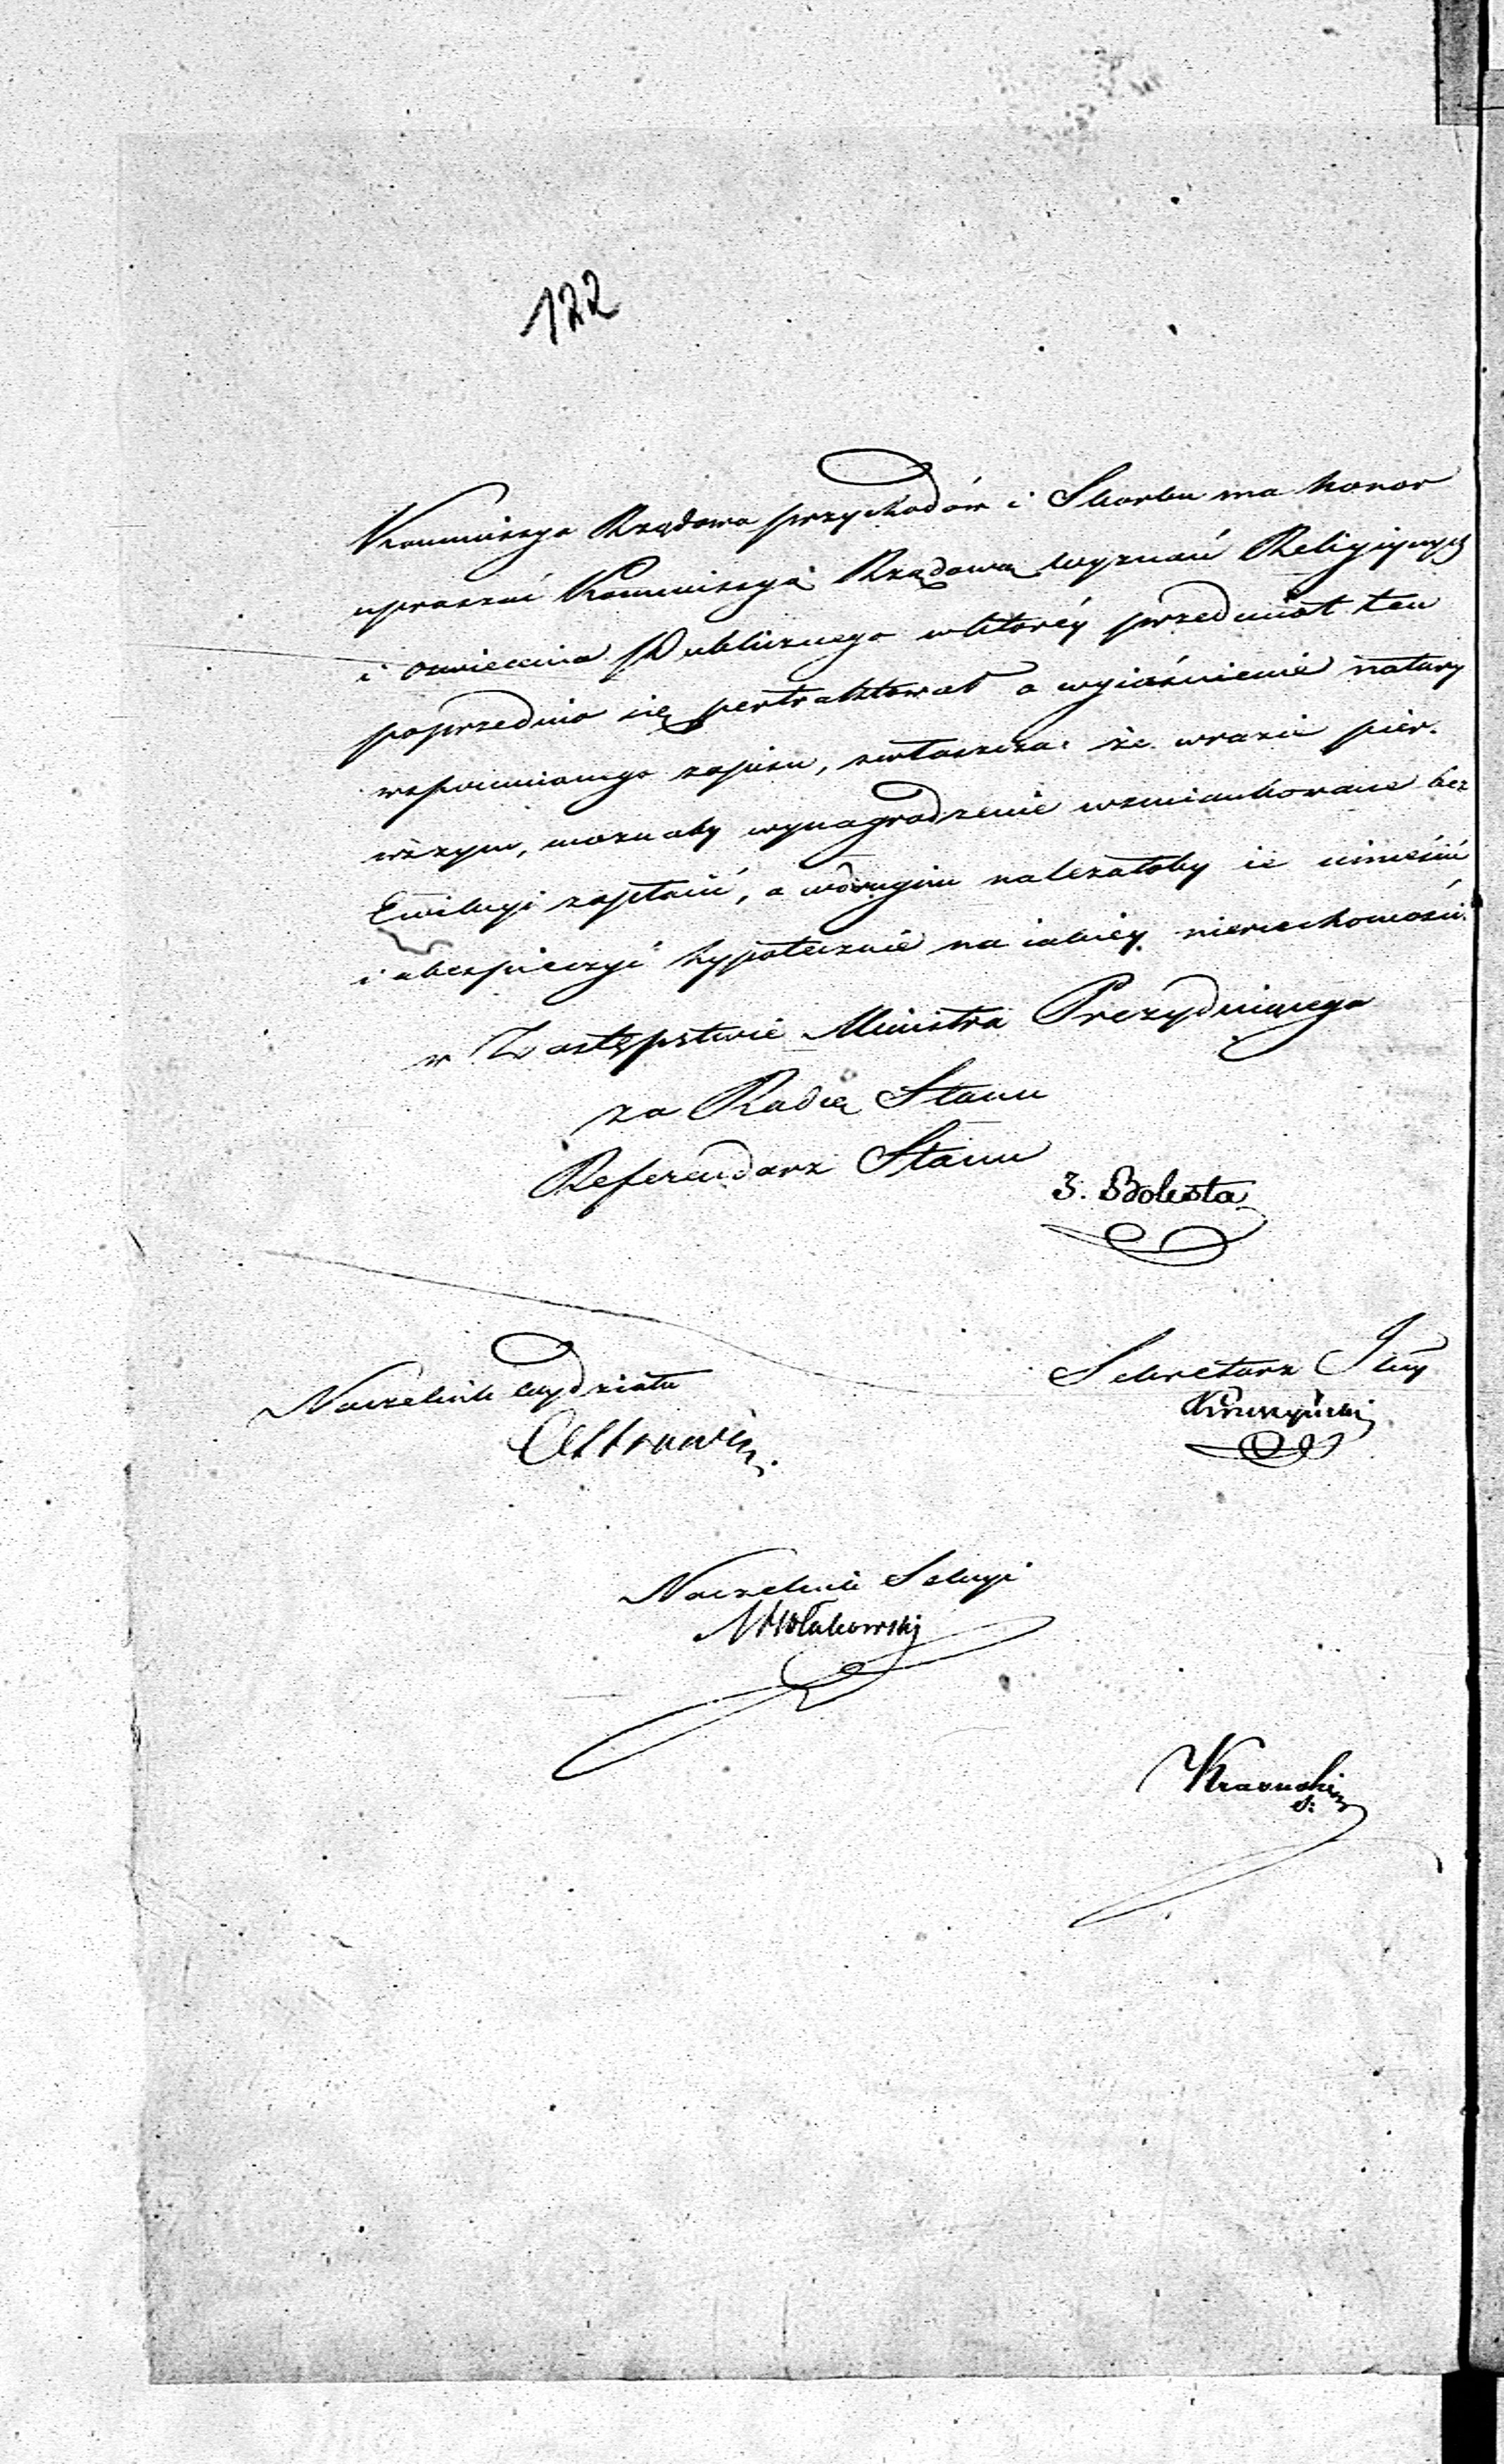 122
Kommissya Rządowa przychodów i Skarbu ma honor
upraszać Kommissyą Rządową Wyznań Religiynych
i oswiecenia Publicznego wktoréy przedmiot ten
poprzednio się pertraktował o wyiaśnienie natury
wspomnionego zapisu, zwłaszcza że wrazie pier-
wszym, moznaby wynagrodzenie wzmiankowane bez
Ewikcyi zapłacić, a wdrugim nalezałoby ie umieścić
i ubezpieczyć hypotecznie na iakiéy nieruchomości.
w Zastępstwie Ministra Prezyduiącego
za Radcę Stanu
Referendarz Stanu
J. Bolesta
Naczelnik Wydziału
Sekretarz Jlny
Kruszyński
Naczelnik Sekcyi